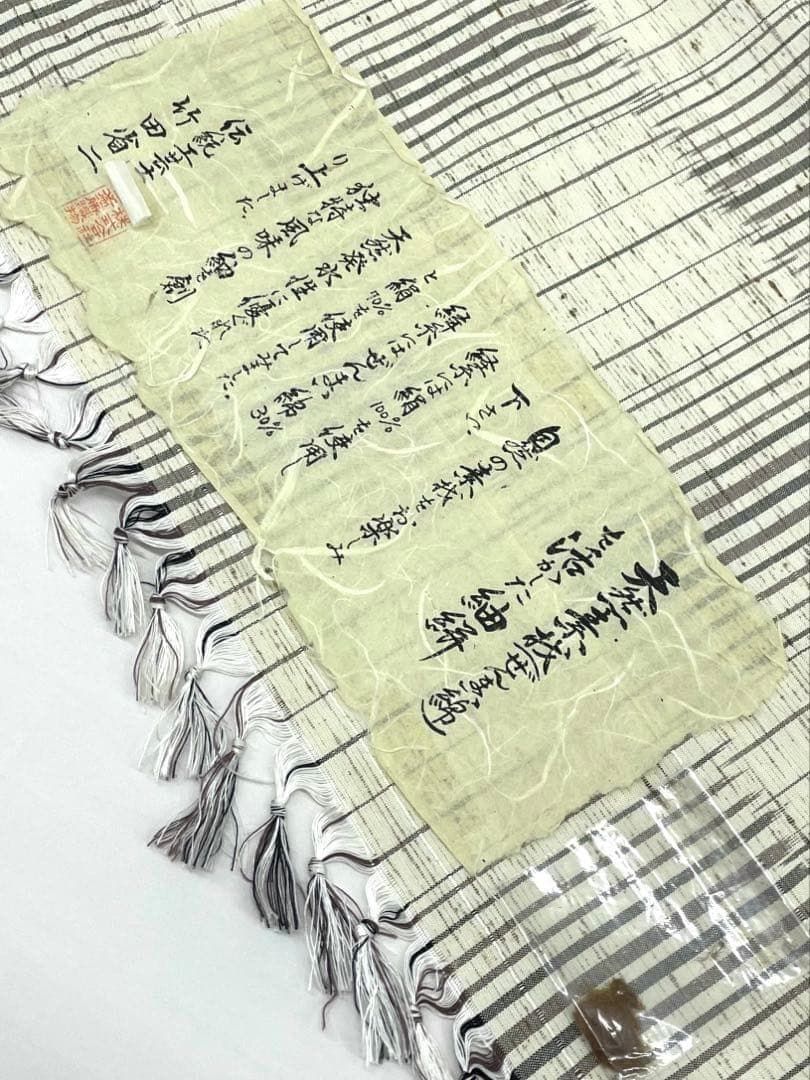 天然素材ぜんまい綿
を活かした紬絣
自然の素材をお楽しみ
下さい
経糸には絹100%を使用し
緯糸にはぜんまい綿30%
と絹70%を使用してみました。
天然発水性に優ぐれた
独特な風味の紬を創
り上げました。
伝統工芸士
竹田省二